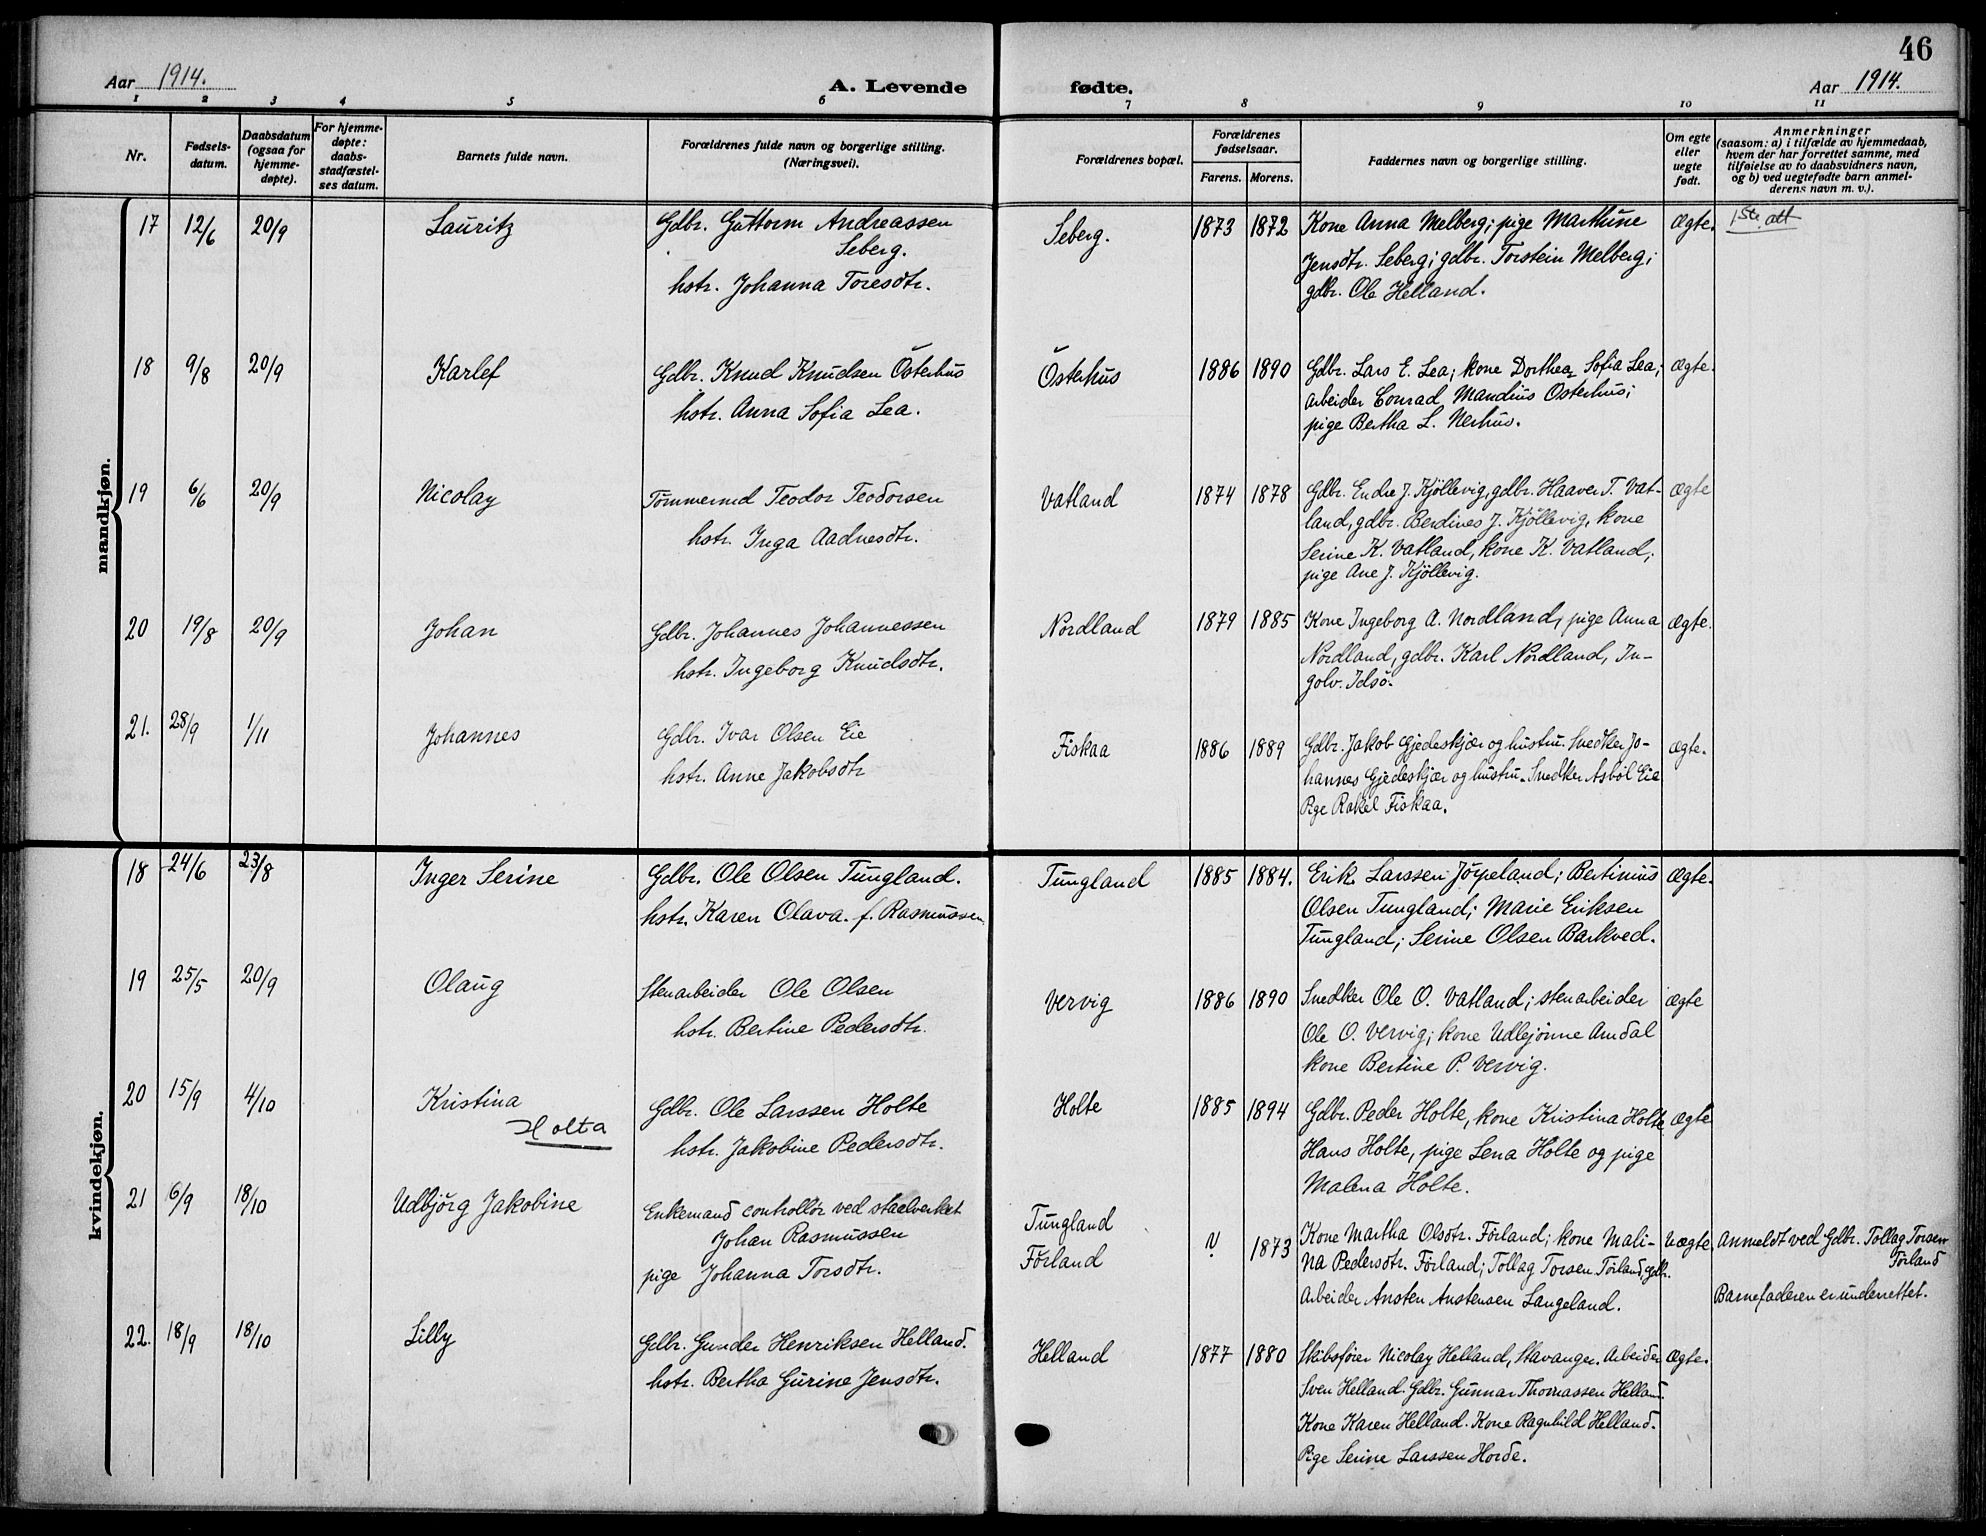 46
Aar 1914. A. Levende fødte. Aar 1914.
1 2 3 4 5 6 7 8 9 10 11
Nr.
Fødsels-
datum.
Daabsdatum
(ogsaa for
hjemme-
døpte).
For hjemme-
døpte:
daabs-
stadfæstel-
ses datum.
Barnets fulde navn.
Forældrenes fulde navn og borgerlige stilling.
(Næringsvei).
Forældrenes bopæl.
Forældrenes
fødselsaar.
Farens. Morens.
Faddernes navn og borgerlige stilling.
Om egte
eller
uegte
født.
Anmerkninger
(saasom: a) i tilfælde av hjemmedaab,
hvem der har forrettet samme, med
tilføielse av to daabsvidners navn,
og b) ved uegtefødte barn anmel-
derens navn m. v.).
mandkjøn.
17 12/6 20/9 Lauritz
Gdbr. Guttorm Andreassen
Seberg.
hstr. Johanna Toresdtr.
Seberg. 1873 1872
Kone Anna Melberg; pige Marthine
Jensdtr. Seberg; gdbr. Torstein Melberg;
gdbr. Ole Helland.
Ægte.
1 Ste. att
18 9/8 20/9 Karlef
Gdbr. Knud Knudsen Österhus
hstr. Anna Sofia Lea.
Österhus 1886 1890
Gdbr. Lars E. Lea; kone Dorthea Sofia Lea;
arbeider Conrad Mandius Osterhus;
pige Bertha L. Nerhus.
ægte.
19 6/6 20/9 Nicolay
Tømmermd Teodor Teodorsen
hstr. Inga Aadnesdtr.
Vatland 1874 1878
Gdbr. Endre J. Kjöllevig, gdbr. Haaver T. Vat-
land, gdbr. Berdines J. Kjöllevig, kone
Serine K. Vatland, kone K. Vatland;
pige Ane J. Kjöllevig.
ægte
20 19/8 20/9 Johan
Gdbr. Johannes Johannessen
hstr. Ingeborg Knudsdtr.
Nordland 1879 1885
Kone Ingeborg A. Nordland, pige Anna
Nordland, gdbr. Karl Nordland, In-
golv. Idsö.
ægte.
21. 28/9 1/11 Johannes
Gdbr. Ivar Olsen Eie
hstr. Anne Jakobsdtr
Fiskaa 1886 1889
Gdbr. Jakob Gjedeskjær og hustru. Snedker Jo-
hannes Gjedeskjær og hustru. Snedker Asböl Eia
Pige Rakel Fiskaa.
ægte.
kvindekjøn.
18 24/6 23/8 Inger Serine
Gdbr. Ole Olsen Tungland.
hstr. Karen Olava. f. Rasmussen
Tungland 1885 1884.
Erik Larssen Jörpeland; Bertinius
Olsen Tungland; Marie Eriksen
Tungland; Serine Olsen Barkved.
Ægte.
19 25/5 20/9 Olaug
Stenarbeider Ole Olsen
hstr. Bertine Pedersdtr.
Vervig 1886 1890
Snedker Ole O. Vatland; stenarbeider
Ole O. Vervig; kone Udlejønne Amdal
kone Bertine P. Vervig.
ægte
20 15/9 4/10 Kristina
Holta
Gdbr. Ole Larssen Holte
hstr. Jakobine Pedersdtr.
Holte 1885 1894
Gdbr. Peder Holte, kone Kristina Holte,
Hans Holte, pige Lena Holte og pige
Malena Holte.
Ægte
21 6/9 18/10 Udbjörg Jakobine
Enkemand controllör ved staalverket
Johan Rasmussen
pige Johanna Torsdtr.
Tungland
Förland
? 1873
Kone Martha Olsdtr. Förland; kone Mali-
na Pedersdtr. Förland; Tollag Torsen Förland, gdbr.
Arbeider Austen Austensen Langeland.
Uægte
Anmeldt ved Gdbr. Tollag Torsen
Förland
Barnefaderen er underrettet.
22. 18/9 18/10 Lilly
Gdbr. Gunder Henriksen Helland.
hstr. Bertha Gurine Jensdtr.
Helland 1877 1880
Skibsförer Nicolay Helland, Stavanger. Arbeider
Sven Helland. Gdbr. Gunnar Thomassen Helland.
Kone Karen Helland. Kone Ragnhild Helland.
Pige Serine Larssen Horde.
Ægte.